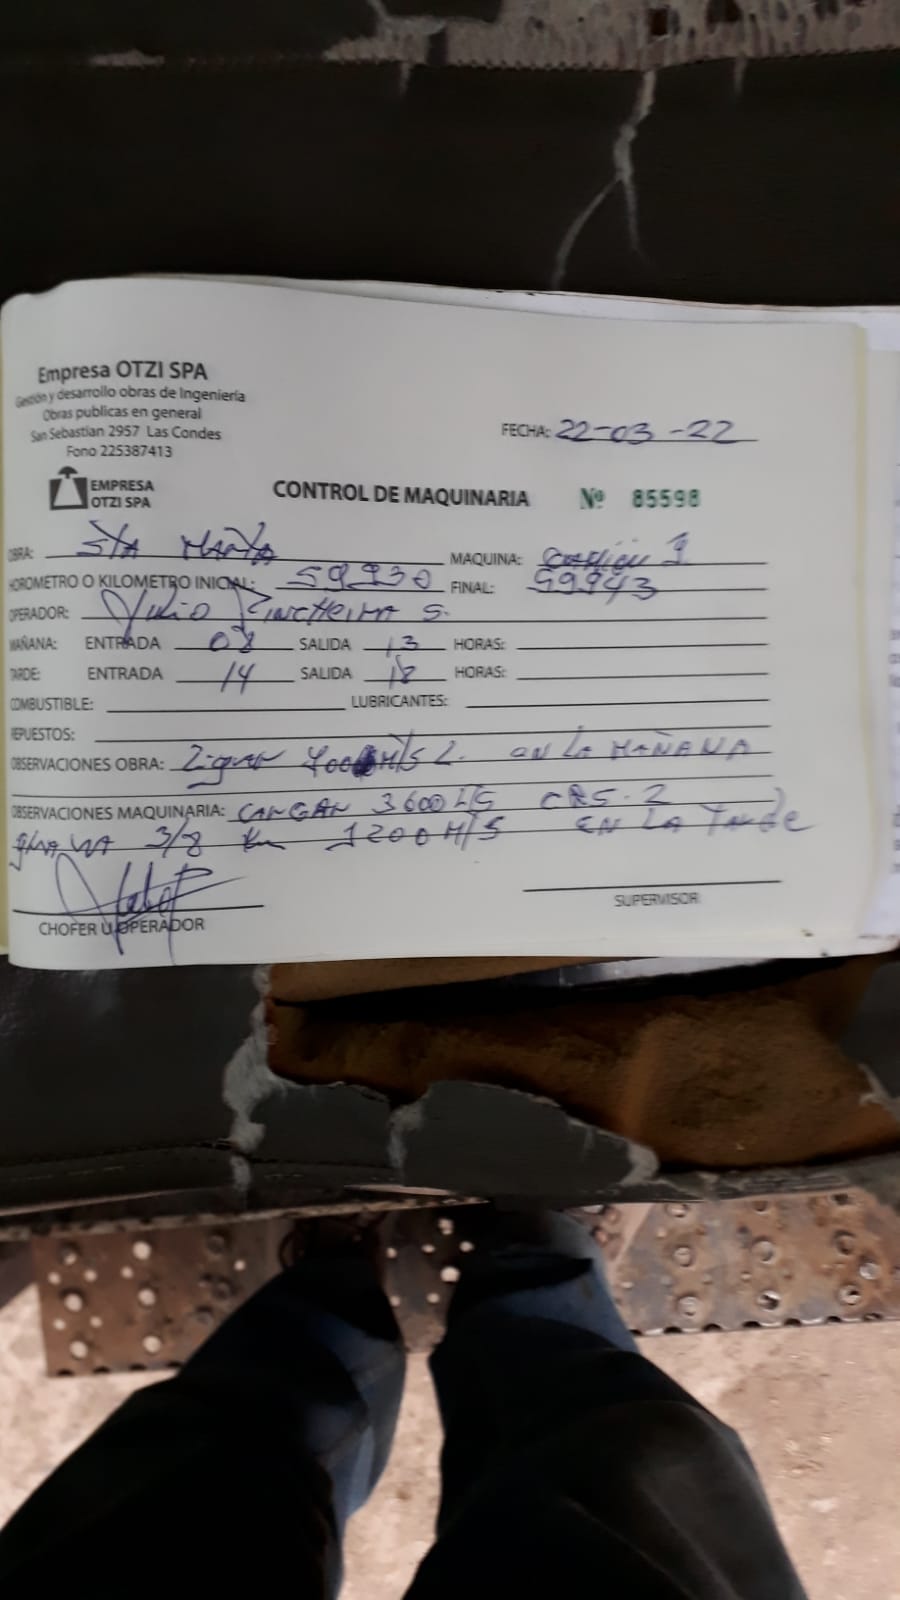 Empresa OTZI SPA
Gestión y desarrollo obras de Ingeniería
Obras publicas en general
San Sebastian 2957 Las Condes
Fono 225387413
FECHA: 22-03-22
EMPRESA
OTZI SPA
CONTROL DE MAQUINARIA Nº 85598
OBRA: STA MARTA MAQUINA: camión 1
HOROMETRO O KILOMETRO INICIAL: 59930 FINAL: 59943
OPERADOR: Julio S.
MAÑANA: ENTRADA 08 SALIDA 13 HORAS:
TARDE: ENTRADA 14 SALIDA 18 HORAS:
COMBUSTIBLE: LUBRICANTES:
REPUESTOS:
OBSERVACIONES OBRA: EN LA MAÑANA
OBSERVACIONES MAQUINARIA: 3600 CRS-2
3/8 1200 EN LA Tarde
CHOFER U OPERADOR
SUPERVISOR